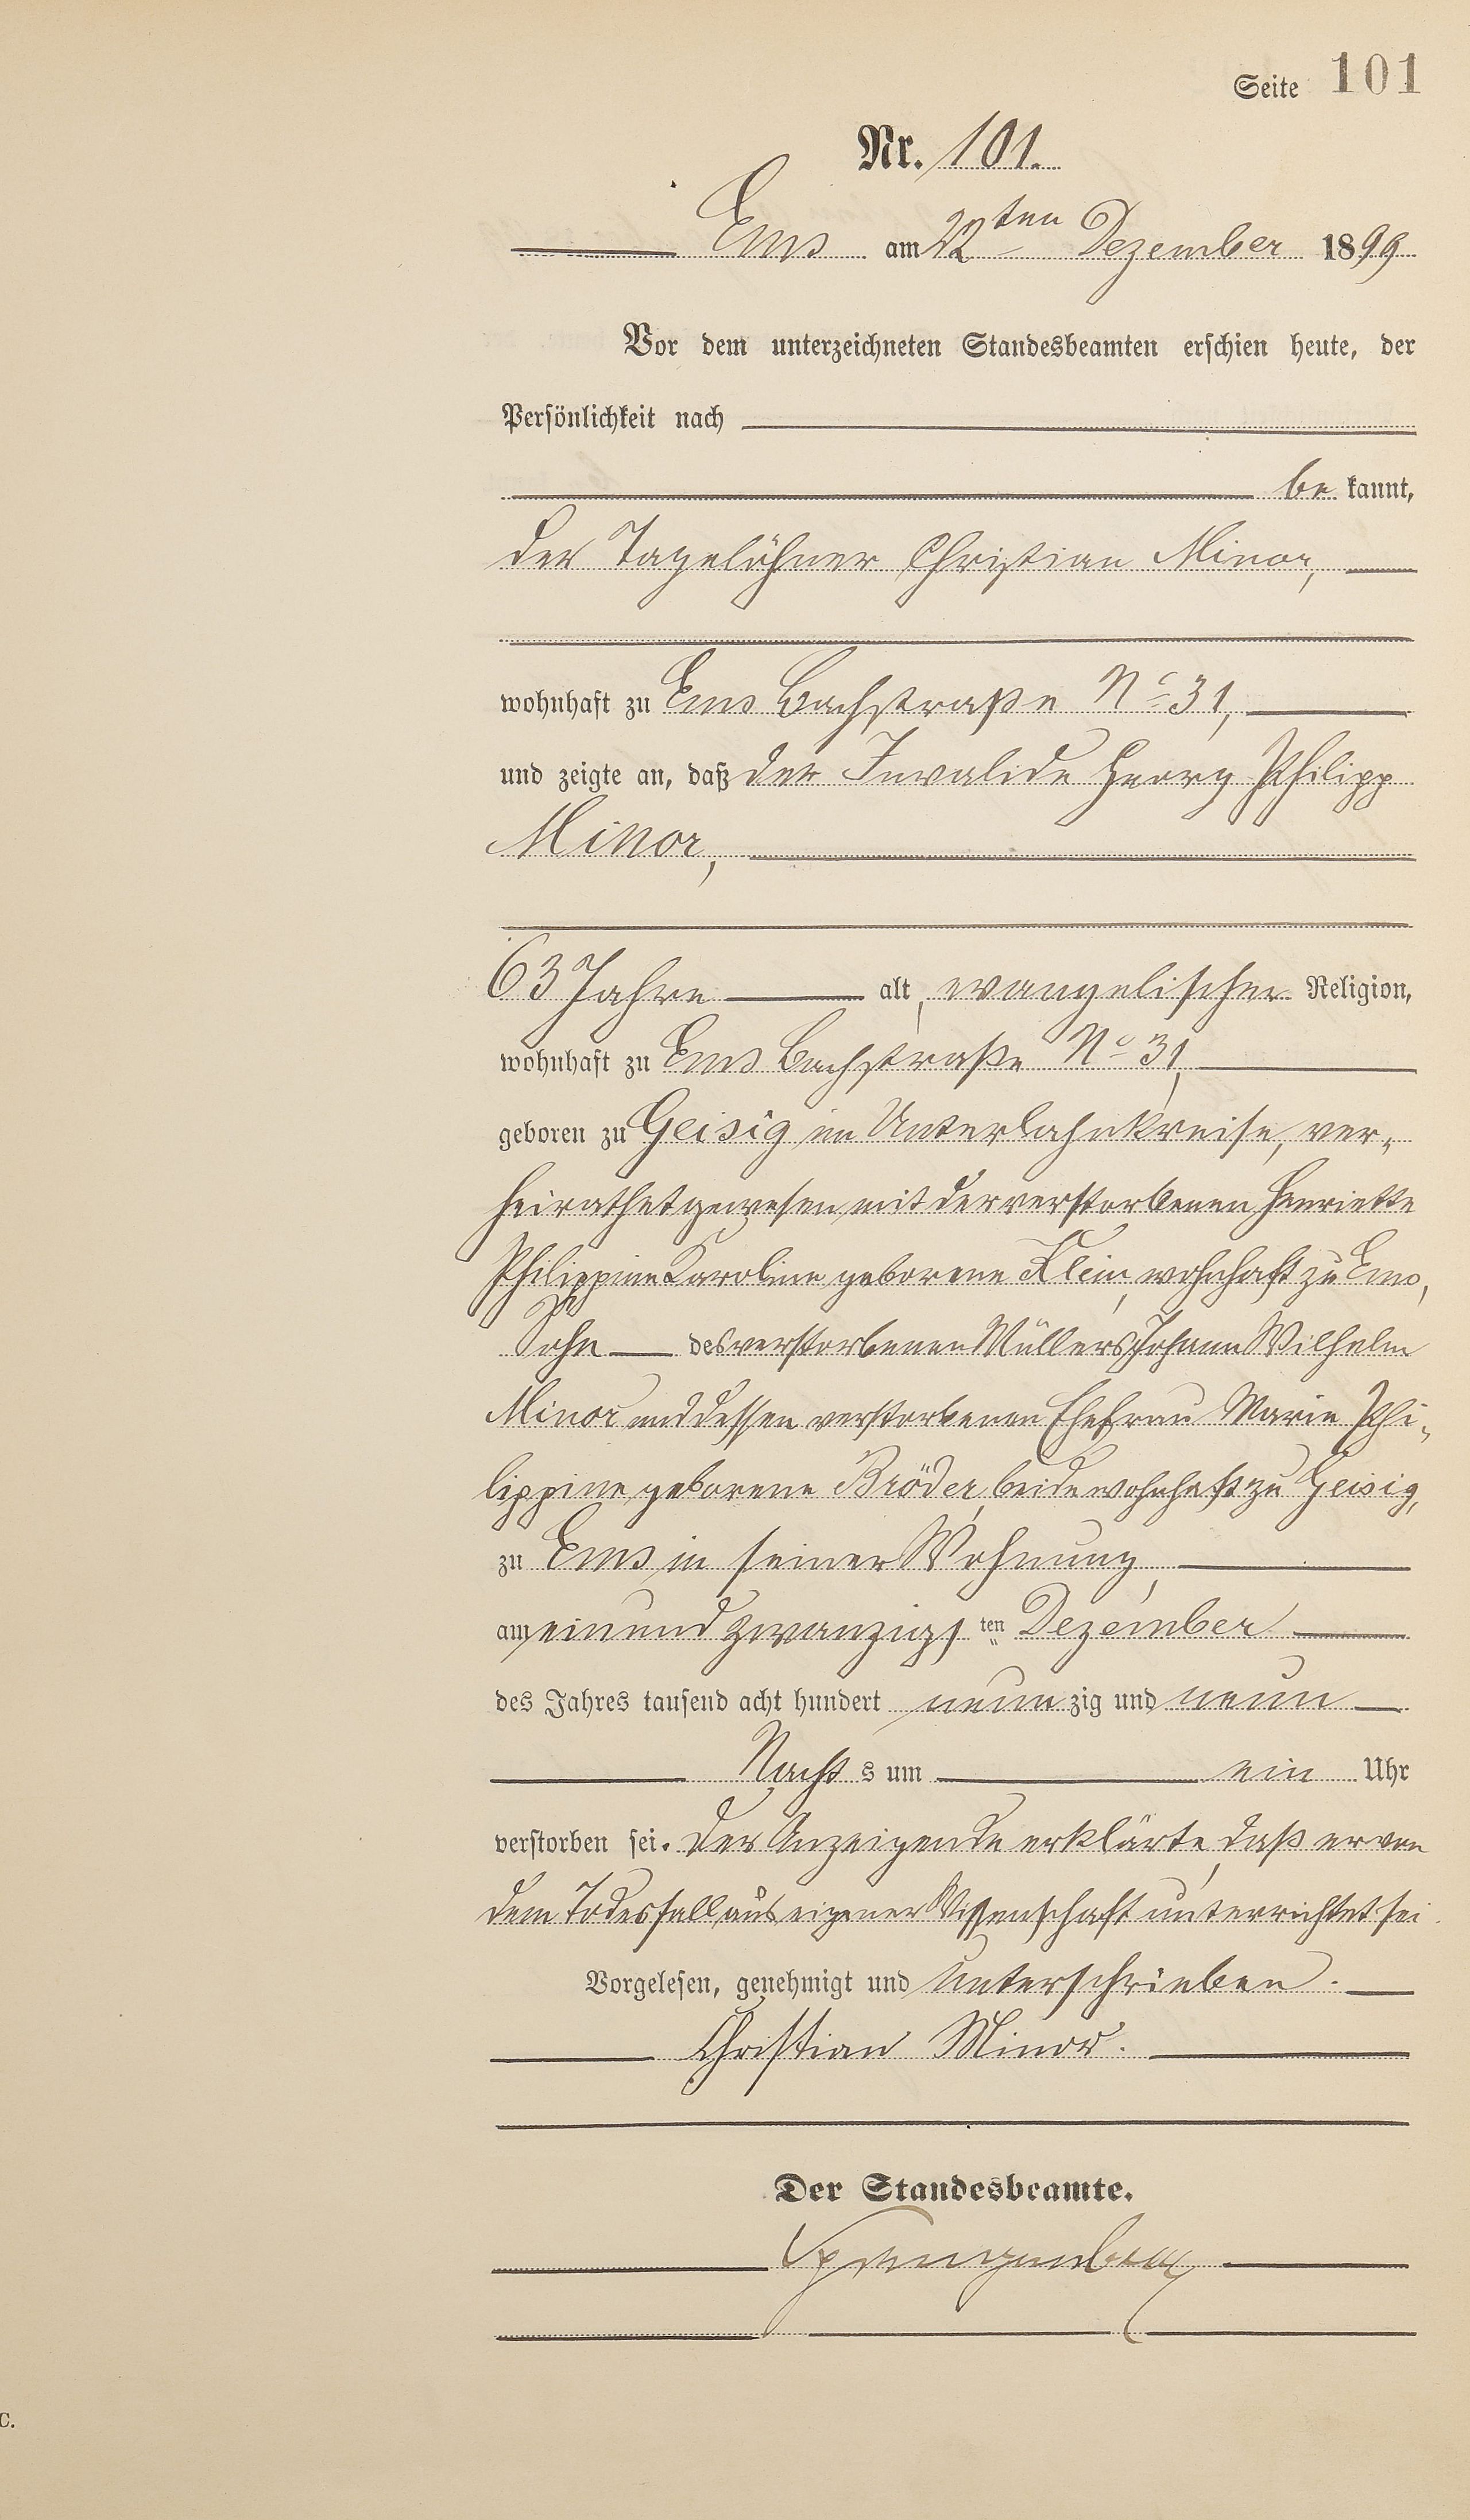 Seite 101
Nr. 101.
Ems am 22ten Dezember 1899
Vor dem unterzeichneten Standesbeamten erschien heute, der
Persönlichkeit nach
be kannt,
der Tagelöhner Christian Minor,
wohnhaft zu Ems Bachstraße No 31,
und zeigte an, daß der Invalide Georg Philipp
Minor,
63 Jahre alt, evangelischer Religion,
wohnhaft zu Ems Bachstraße No 31,
geboren zu Geisig im Unterlahnkreise, ver-
heirathet gewesen mit der verstorbenen Henriette
Philippine Karoline geborene Klein, wohnhaft zu Ems,
Sohn des verstorbenen Müllers Johann Wilhelm
Minor und dessen verstorbenen Ehefrau Marie Phi-
lippine geborene Bröder, beide wohnhaft zu Geisig,
zu Ems in seiner Wohnung,
am einund zwanzigs ten Dezember
des Jahres tausend acht hundert neun zig und neun
Nacht s um ein Uhr
verstorben sei. Der Anzeigende erklärte, daß er von
dem Todesfall aus eigener Wissenschaft unterrichtet sei.
Vorgelesen, genehmigt und unterschrieben.
Christian Minor.
Der Standesbeamte.
C.